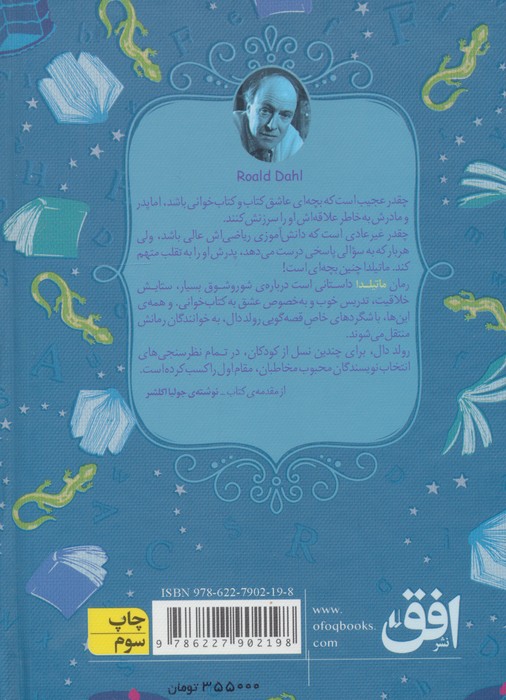 Roald Dahl
چقدر عجیب است که بچه‌ای عاشق کتاب و کتاب‌خوانی باشد، اما پدر
و مادرش به خاطر علاقه‌اش او را سرزنش کنند.
چقدر غیرعادی است که دانش‌آموزی ریاضی‌اش عالی باشد، ولی
هربار که به سؤالی پاسخی درست می‌دهد، پدرش او را به تقلب متهم
کند. ماتیلدا چنین بچه‌ای است!
رمان ماتیلدا داستانی است درباره‌ی شوروشوق بسیار، ستایش
خلاقیت، تدریس خوب و به‌خصوص عشق به کتاب‌خوانی، و همه‌ی
این‌ها، با شگردهای خاص قصه‌گویی رولد دال، به خوانندگان رمانش
منتقل می‌شوند.
رولد دال، برای چندین نسل از کودکان، در تمام نظرسنجی‌های
انتخاب نویسندگان محبوب مخاطبان، مقام اول را کسب کرده است.
از مقدمه‌ی کتاب _ نوشته‌ی جولیا اکلشر
ISBN 978-622-7902-19-8
9 786227 902198
چاپ
سوم
www.
ofoqbooks.
com
نشر افق
۳۵۵۰۰۰ تومان